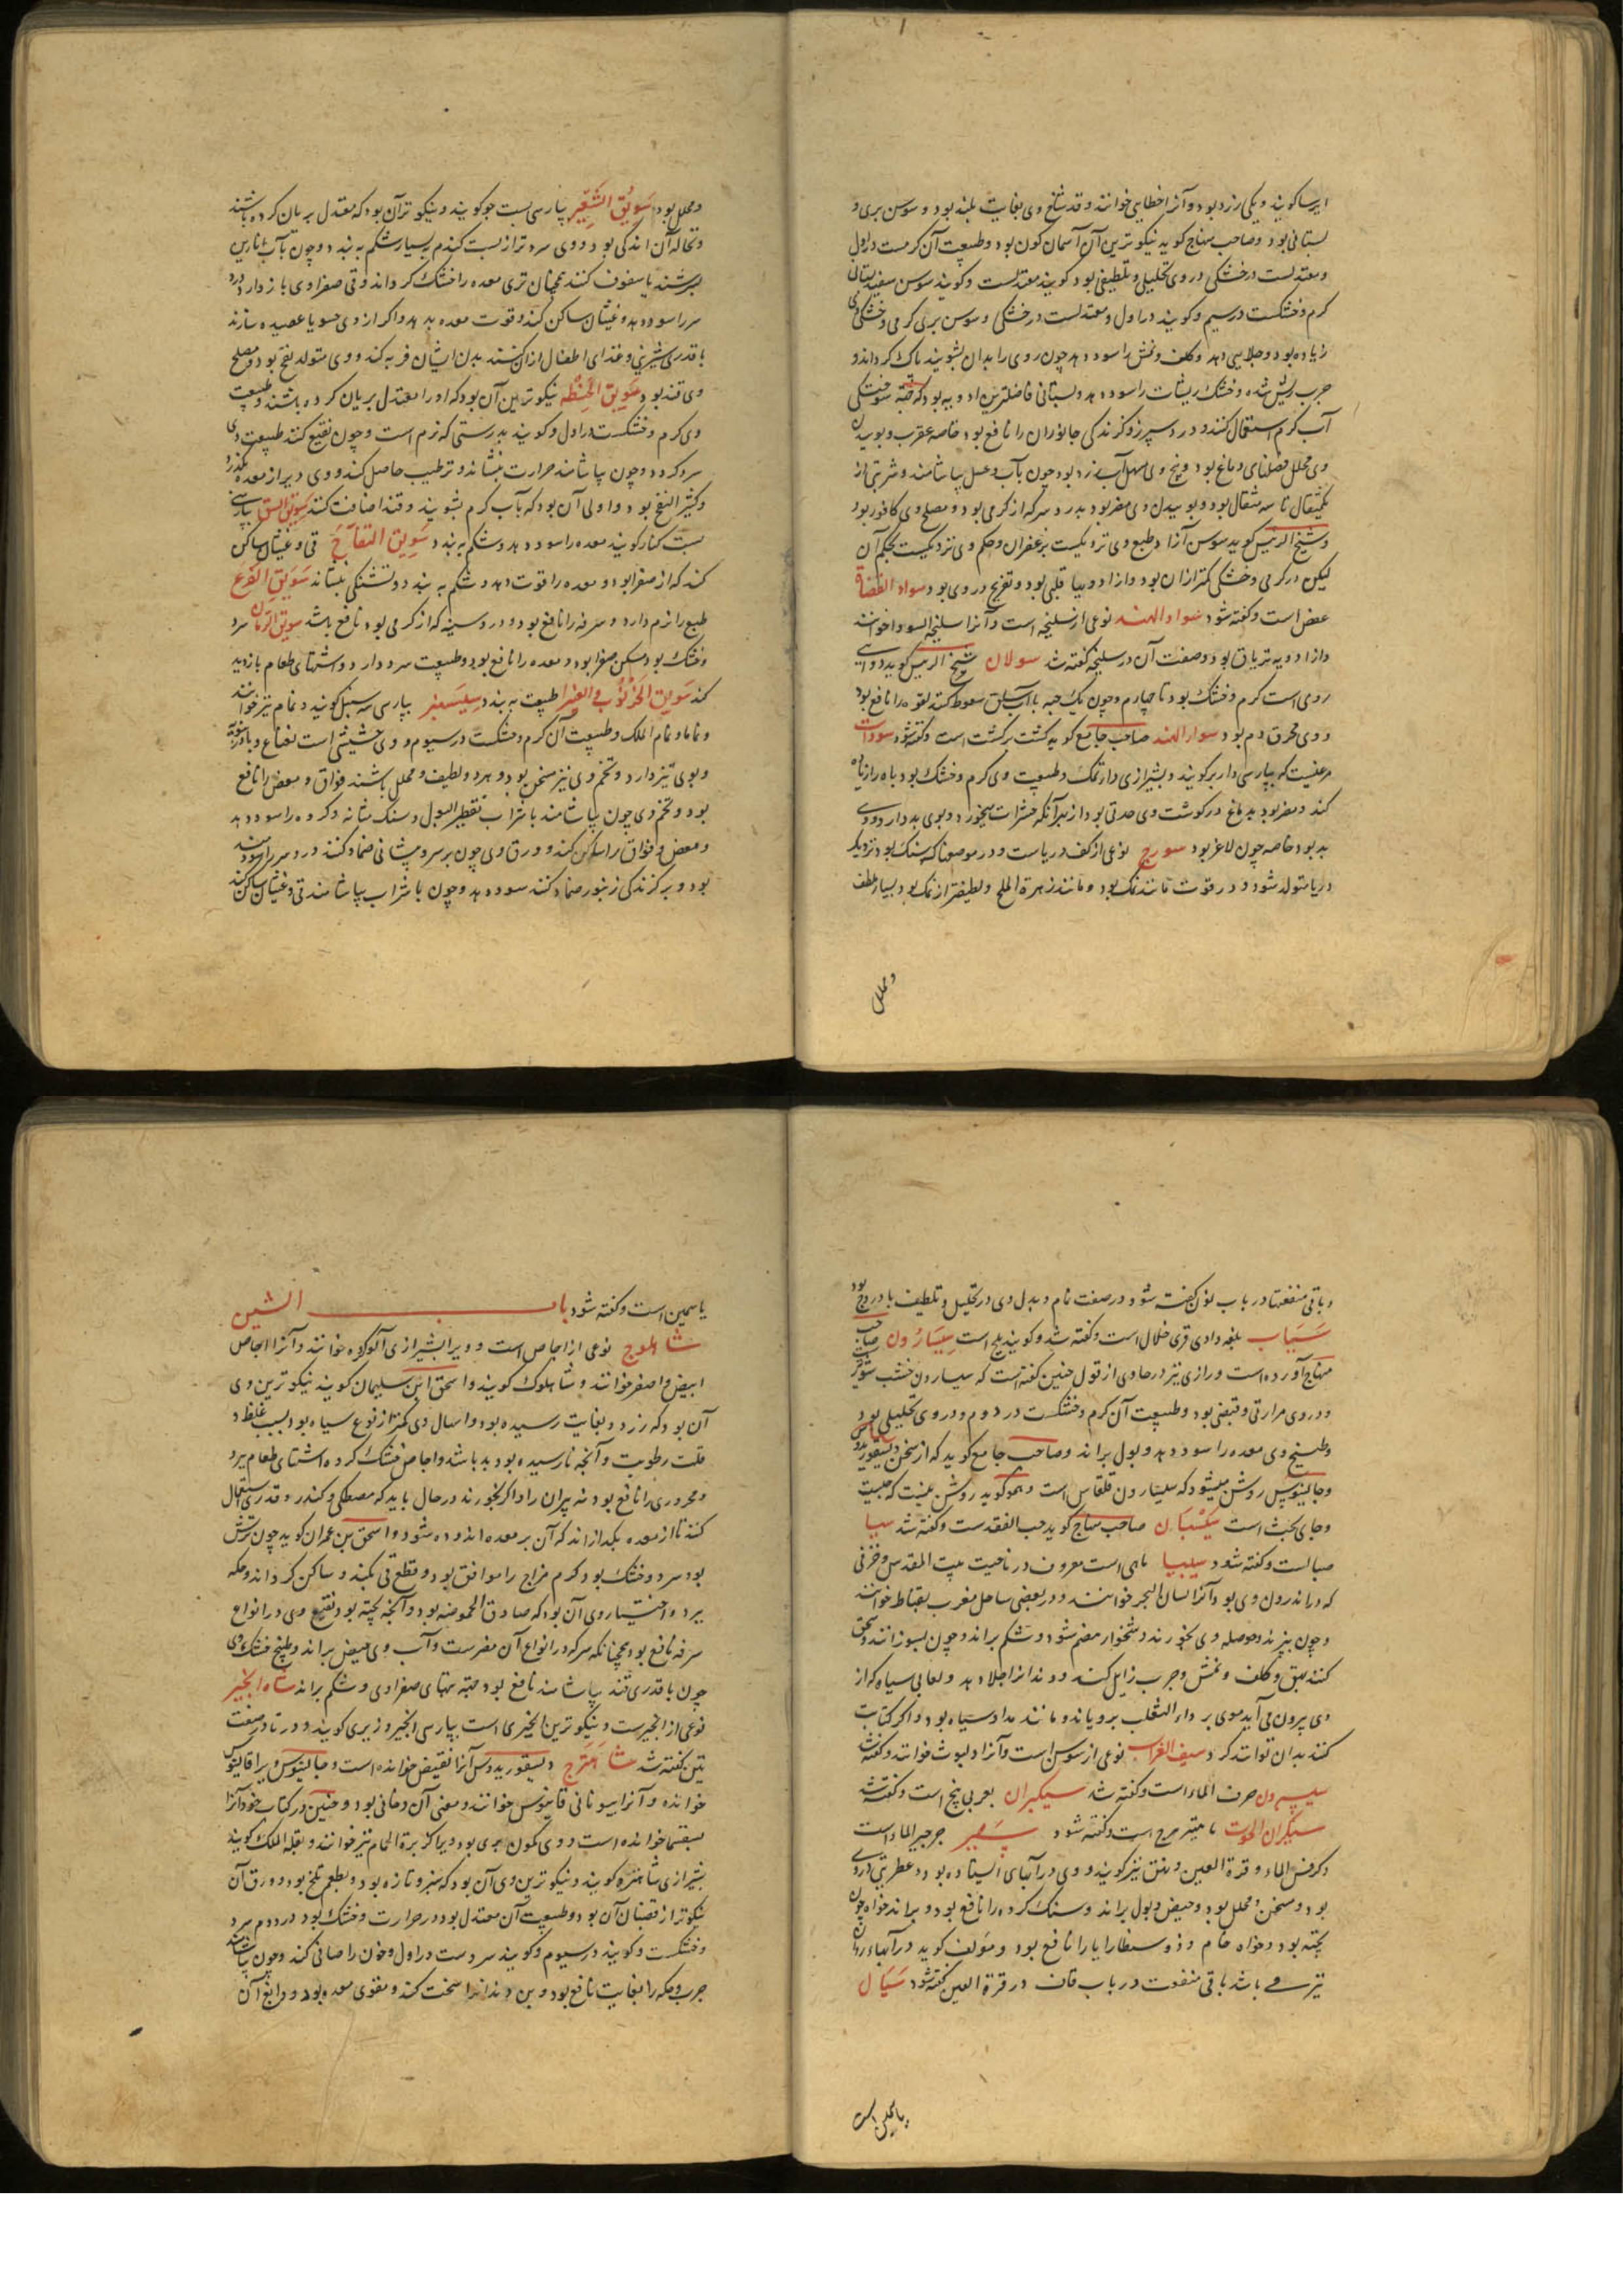 ایرسا گویند و یکی زرد بود و آنرا خطایی خوانند و قد شاخ وی بغایت بلند بود و سوسن بری و
بستانی بود و صاحب منهاج گوید نیکوترین آن آسمان گون بود و طبیعت آن گرمست در اول
و معتدلست در خشکی در وی تحلیلی و تلطیفی بود گویند معتدلست و گویند سوسن سفید بستانی
گرم و خشکست در سیم و گویند در اول و معتدلست در خشکی و سوسن بری گرمی و خشکی وی
زیاده بود و جلایی دهد و کلف و نمش را سود دهد چون روی را بدان بشویند پاک گرداند و
جرب ریش شده و خشک ریشات را سود دهد و بستانی فاضلترین ادویه بود که جهة سوختگی
آب گرم استعمال کنند و درد سپرز و گزندگی جانوران را نافع بود خاصه عقرب و بوییدن
وی محلل فضلهای دماغ بود و بیخ وی مسهل آب زرد بود چون بآب و عسل بیاشامند و شربتی از
یکمثقال تا سه مثقال بود و بوییدن وی مضر بود بدرد سر که از گرمی بود و مصلح وی کافور بود
و شیخ الرئیس گوید سوسن آزاد طبع وی نزدیکست بزعفران و حکم وی نزدیکست بحکم آن
لیکن در گرمی و خشکی کمتر از آن بود و از ادویها قلبی بود و تفریح در وی بود سواد القضاة
عفص است و گفته شود سواد الهند نوعی از سلیخه است و آنرا سلیخه السودا خوانند
و از ادویه تریاق بود و صفت آن در سلیخه گفته شد سولان شیخ الرئیس گوید دوایی
رومی است گرم و خشک بود تا چهارم و چون یک حبه با آب سلق سعوط کنند لقوه را نافع بود
و وی محرق دم بود سوار الهند صاحب جامع گوید کشت برکشت است و گفته شود سودانیات
مرغیست که بپارسی داربر گویند و بشیرازی دارتمک و طبیعت وی گرم و خشک بود باه را زیاده
کند و مضر بود بدماغ در گوشت وی حدتی بود از بهر آنکه حشرات میخورد و بوی بد دارد و وی
بد بود خاصه چون لاغر بود سورج نوعی از کف دریاست و در موضعها که سنگ بود نزدیک
دریا متولد شود و در قوت مانند نمک بود و مانند زهرة الملح و لطیفتر از نمک بود بسیار ملطف
و محلل
و محلل بود سَویق الشعیر بپارسی پست جو گویند و نیکوترآن بود که معتدل بریان کرده باشند
و نخاله آن اندکی بود و وی سردتر از پست گندم بسیار شکم به بندد و چون بآب انارین
بسرشند یا سفوف کنند همچنان تری معده را خشک گرداند و قی صفراوی باز دارد و درد
سر را سود دهد و غثیان ساکن کند و قوت معده بدهد و اگر از وی حسو یا عصیده سازند
با قدری شیرینی و غذای اطفال از آن کنند بدن ایشان فربه کند و وی متولد نفخ بود و مصلح
وی قند بود سویق الحنطه نیکوترین آن بود که او را معتدل بریان کرده باشند و طبیعت
وی گرم و خشکست در اول و گویند بدرستی که نرم است و چون نقیع کنند طبیعت وی
سرد گردد و چون بیاشامند حرارت بنشاند و ترطیب حاصل کند و وی دیر از معده بگذرد
و کثیر النفخ بود و اولی آن بود که بآب گرم بشویند و قند اضافت کنند سویق النبق بپارسی
پست کنار گویند معده را سود دهد و شکم به بندد سَویق التفاح قی و غثیان ساکن
کند که از صفرا بود و معده را قوت دهد و شکم به بندد و تشنگی بنشاند سویق القرع
طبع را نرم دارد و سرفه را نافع بود و درد سینه که از گرمی بود نافع باشد سویق الرمان سرد
و خشک بود مسکن صفرا بود و معده را نافع بود و طبیعت سرد دارد و اشتهای طعام بازدید
کند سَویق الخرنوب و الغبیرا طبیعت به بندد سِیسَنبر بپارسی سه سنبل گویند و نمام نیز خوانند
و نمام الملک و طبیعت آن گرم و خشکست در سیوم و وی حشیشی است نعناع و بادرنجبویه
و بوی تیز دارد و تخم وی نیز مسخن بود و هر دو لطیف و محلل باشند فواق و مغص را نافع
بود و تخم وی چون بیاشامند با شراب تقطیر البول و سنگ مثانه و گرده را سود دهد
و مغص و فواق را ساکن کند و ورق وی چون بر سر و پیشانی ضماد کنند درد سر را سودمند
بود و بر گزندگی زنبور ضماد کنند سود دهد و چون با شراب بیاشامند قی و غثیان ساکن کند
و باقی منفعتها در باب نون گفته شود در صفت نمام و بدل وی در تحلیل و تلطیف بادروج بود
سَیَیاب بلغه وادی قری خلال است و گفته شد و گویند بلح است سِیسَارُون صاحب
منهاج آورده است و رازی نیز در حاوی از قول حنین گفته است که سیسارون خشب شونیز است
و در وی مرارتی و قبضی بود و طبیعت آن گرم و خشکست در دوم و در وی تحلیلی بود
و طبیخ وی معده را سود دهد و بول براند و صاحب جامع گوید که از سخن دیسقوریدوس
و جالینوس روشن میشود که سیسارون قلقاس است و همو گوید روشن نیست که چیست
و جای بحث است سَیکشبان صاحب منهاج گوید حب الفقد است و گفته شد سیبا
صبا است و گفته شود سیبیا ماهی است معروف در ناحیت بیت المقدس و خزفی
که در اندرون وی بود آنرا لسان البحر خوانند و در بعضی ساحل مغرب بقناط خوانند
و چون بپزند و حوصله وی بخورند دشخوار هضم شود و شکم براند و چون بسوزانند و سحق
کنند بهق و کلف و نمش و جرب زایل کند و دندانرا جلا دهد و لعابی سیاه که از
وی بیرون می آید موی بر داء الثعلب برویاند و مانند مداد سیاه بود و اگر کتابت
کنند بدان توانند کرد سیف الغراب نوعی از سوسن است و آنرا دلبوث خوانند و گفته شد
سیسرون حرف الماء است و گفته شد سیکران بعربی بنج است و گفته شد
سیکران الحوت ماهیزهرج است و گفته شود سَیسَبر جرجیر الماء است
و کرفس الماء و قرة العین و ... نیز گویند و وی در آبهای ایستاده بود و عطریتی در وی
بود و مسخن و محلل بود و حیض و بول براند و سنگ گرده را نافع بود و براند خواه چون
پخته بود و خواه خام و ذوسنطاریا را نافع بود و مؤلف گوید در آبهاء روان
نیز می باشد باقی منفعت در باب قاف در قرة العین گفته شود سَیَال
یاسمین است
یاسمین است و گفته شود باب الشین
شاهلوج نوعی از اجاص است و ویرا بشیرازی آلوکوه خوانند و آنرا اجاص
ابیض و اصفر خوانند و شاهلوک گویند و اسحق ابن سلیمان گویند نیکوترین وی
آن بود که زرد و بغایت رسیده بود و اسهال وی کمتر از نوع سیاه بود بسبب غلظ و
قلت رطوبت و آنچه نارسیده بود بد باشد و اجاص خشک کرده اشتهای طعام ببرد
و محروری را نافع بود نه پیران را و اگر بخورند در حال باید که مصطکی و کندر و قدری استعمال
کنند تا از معده بگذراند که آن بر معده اندوده شود و اسحق بن عمران گوید چون ترش
بود سرد و خشک بود گرم مزاج را موافق بود و قطع قی بکند و ساکن گرداند و حکه
ببرد و اختیار وی آن بود که صادق الحموضه بود و آنچه پخته بود نقیع وی در انواع
سرفه نافع بود همچنانکه سرکه در انواع آن مضرست و آب وی حیض براند و طبیخ خشک وی
چون با قدری قند بیاشامند نافع بود جهة تبهای صفراوی و شکم براند شاه انجیر
نوعی از انجیرست و نیکوترین انجیری است بپارسی انجیر وزیری گویند و در تا در صفت
تین گفته شد شاهترج دیسقوریدوس آنرا نقیض خوانده است و جالینوس ویرا قافینوس
خوانده و آنرا بیونانی قاپنوس خوانند و معنی آن دخانی بود و حنین در کتاب خود آنرا
بسقیما خوانده است و وی کمون بری بود و ویرا کزبرة الحمام نیز خوانند و بقلة الملک گویند
بشیرازی شاهتره گویند و نیکوترین وی آن بود که سبز و تازه بود و بطعم تلخ بود و ورق آن
نیکوتر از قضبان آن بود و طبیعت آن معتدل بود در حرارت و خشک بود در دوم سرد
و خشکست و گویند در سیوم و گویند سردست در اول و خون را صافی کند و چون بیاشامند
جرب و حکه را بغایت نافع بود و بن دندانرا سخت کند و مقوی معده بود و دابغ آن